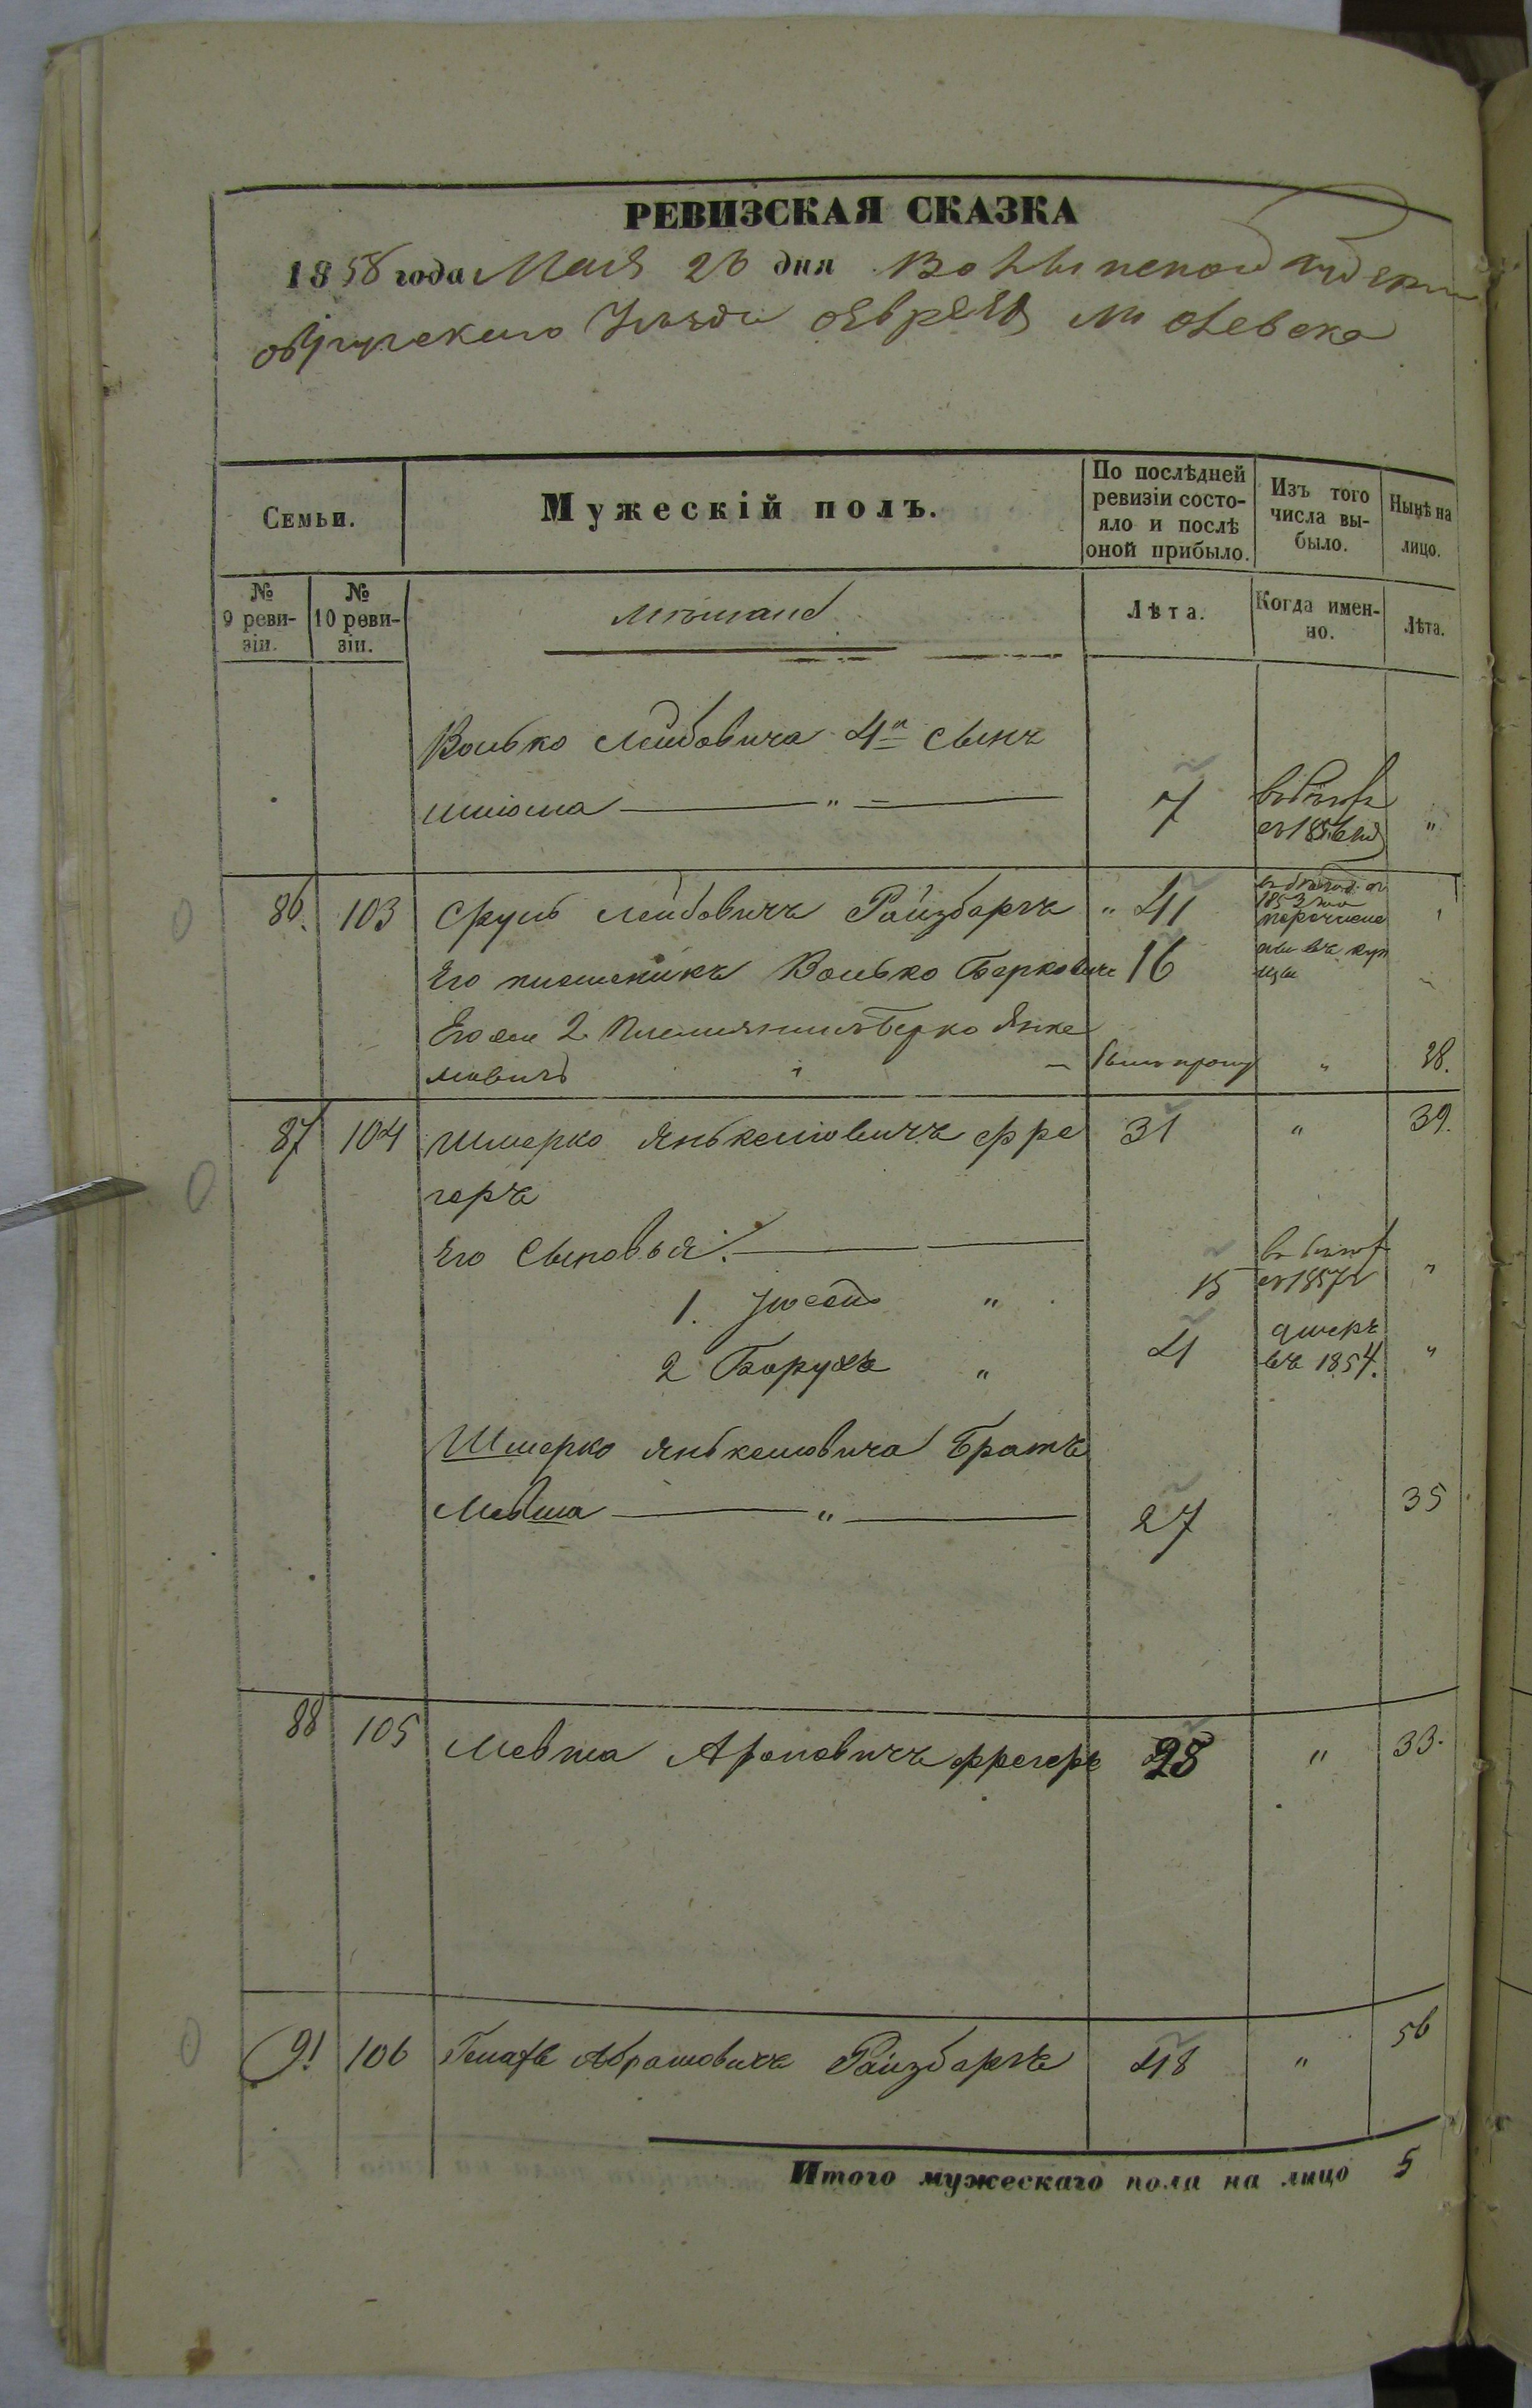 РЕВИЗСКАЯ СКАЗКА
1858 года Мая 26 дня Волынской Губерн
Овручскаго Уезда Еврей М Олевска
Семьи.
Мужескій полъ.
По послѣдней ревизіи состояло и послѣ оной прибыло.
Изъ того числа выбыло.
Нынѣ на лицо.
№ 9 ревизіи.
№ 10 ревизіи.
Мѣщане
Лѣта.
Когда именно.
Лѣта.
Волько Лейбовича 4й Сынъ
Шлома — " — 7 въ бѣгах с 1856 год "
86. 103 Сруль Лейбовичъ Ройзбаргъ " 41 1853 год перечислен
Его племеникъ Волько Берковичъ 16 въ куп цы
Его же 2 Племянник Берко Янке
левичъ " — былъ проп " 28.
87 104 Шмерко Янькелювичъ Фре 31 " 39.
геръ
Его Сыновья: —
1. Іосель " 15 в бѣгах с 1857 г "
2 Борухъ " 4 умеръ въ 1854. "
Шмерко Янькелювича Братъ
Мовша — " — 27 35
88 105 Мовша Ароновичъ Фрегеръ 25 " 33.
91 106 Абрамовичъ Ройзбаргъ 48 " 56
Итого мужескаго пола на лицо 5